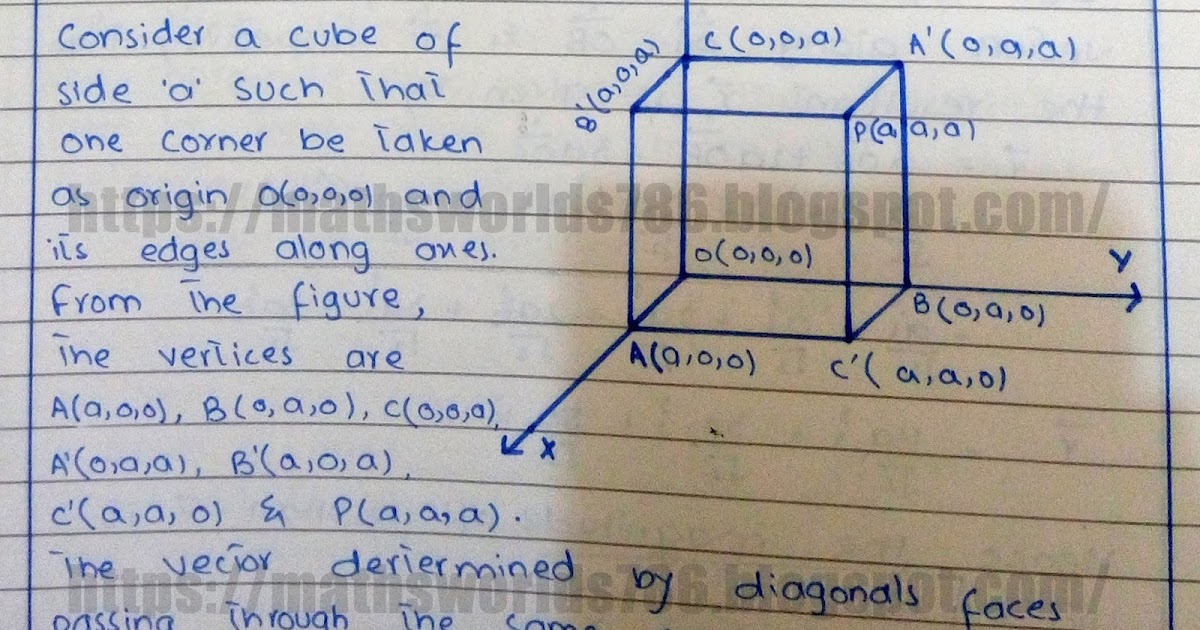 Consider a cube of
side 'a' such that
one corner be taken
as origin O(0,0,0) and
its edges along axes.
From the figure,
the vertices are
A(a,0,0), B(0,a,0), C(0,0,a),
A'(0,a,a), B'(a,0,a),
C'(a,a,0) & P(a,a,a).
The vector deriermined by diagonals faces
passing through the same
C(0,0,a)
A'(0,a,a)
B'(a,0,a)
P(a,a,a)
O(0,0,0)
Y
B(0,a,0)
A(a,0,0)
C'(a,a,0)
X
https://mathsworlds786.blogspot.com/
https://mathsworlds786.blogspot.com/